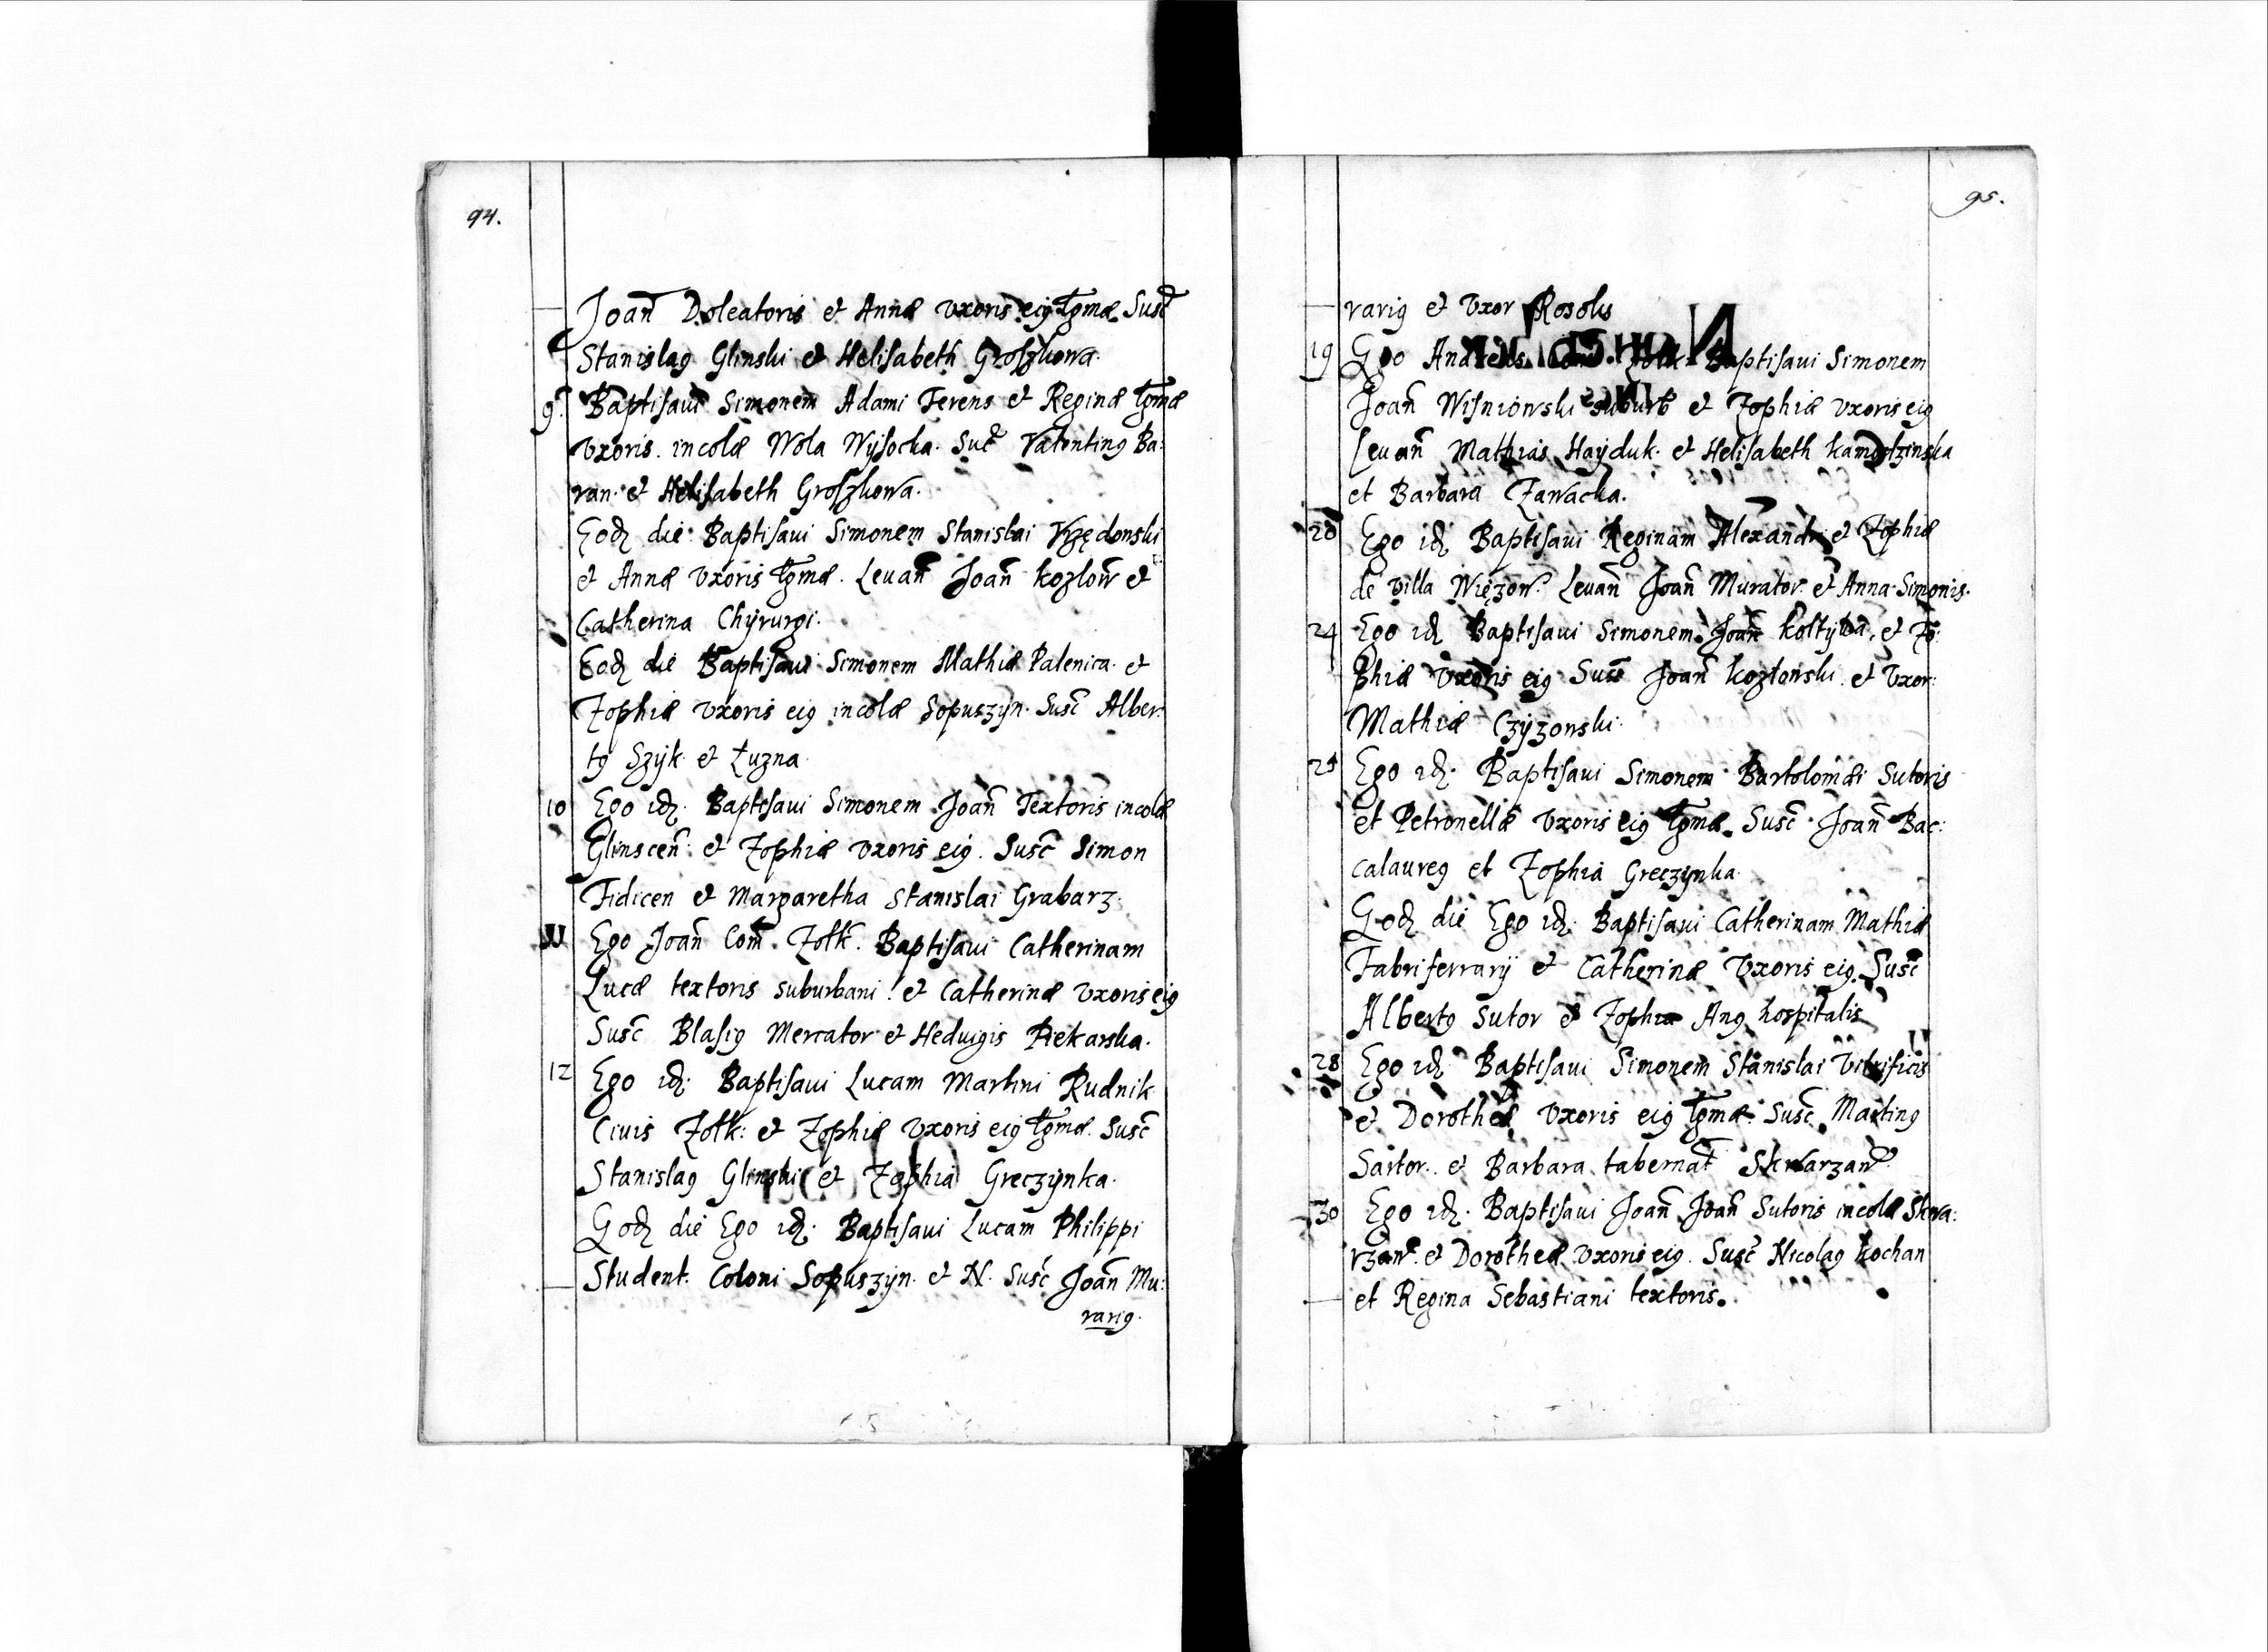 94.
Joan̄ Doleatoris et Annæ vxoris eiꝰ Lgmæ. Susc̄
Stanislaꝰ Glinski et Helisabeth Groszkowa.
9. Baptisaui Simonem Adami Ferens et Reginæ Lgmæ
vxoris. incolæ Wola Wysocka. Suc̄ Valentinꝰ Ba:
ran. et Helisabeth Groszkowa.
Eodꝫ die Baptisaui Simonem Stanislai
et Annæ vxoris Lgmæ. Leuan̄ Joan̄ Kozlow̄ et
Catherina Chyrurgi.
Eodꝫ die Baptisaui Simonem Mathiæ Palenica et
Zophiæ vxoris eiꝰ incolæ Sopuszyn. Susc̄ Alber:
tꝰ Szyk et Łuzna
10 Ego idꝫ. Baptisaui Simonem Joan̄ Textoris incolæ
Glinscen̄. et Zophiæ vxoris eiꝰ. Susc̄ Simon
Fidicen et Margaretha Stanislai Grabarz.
11 Ego Joan̄ Com̄. Zolk̄. Baptisaui Catherinam
Lucæ textoris suburbani. et Catherinæ vxoris eiꝰ
Susc̄ Blasiꝰ Mercator et Heduigis Piekarska.
12 Ego idꝫ. Baptisaui Lucam Martini Rudnik
Ciuis Zolk: et Zophiæ vxoris eiꝰ Lgmæ. Susc̄
Stanislaꝰ Glinski et Zophia Greczynka.
Eodꝫ die Ego idꝫ. Baptisaui Lucam Philippi
Student. Coloni Sopuszyn. et N. Susc̄ Joan̄ Mu:
rariꝰ.
95.
rariꝰ et Vxor Rosolis
19 Ego Andreas Com̄. Zolk. Baptisaui Simonem
Joan̄ Wisniowski suburb et Zophiæ vxoris eiꝰ
Leuan̄ Mathias Hayduk. et Helisabeth
et Barbara Zawacka.
20 Ego idꝫ Baptisaui Reginam Alexandri et Zophiæ
de villa Więzow. Leuan̄ Joan̄ Murator. et Anna Simonis.
24 Ego idꝫ Baptisaui Simonem Joan̄ Koltyba, et Zo:
phiæ vxoris eiꝰ Susc̄ Joan̄ Kozlowski. et Vxor:
Mathiæ Czyzowski.
25 Ego idꝫ. Baptisaui Simonem Bartolomæi Sutoris
et Petronellæ vxoris eiꝰ Lgmæ. Susc̄. Joan̄ Bac:
calaureꝰ et Zophia Greczynka.
Eodꝫ die Ego idꝫ. Baptisaui Catherinam Mathiæ
Fabriferrarij et Catherinæ Vxoris eiꝰ. Susc̄
Albertꝰ Sutor et Zophia Anꝰ hospitalis
28 Ego idꝫ Baptisaui Simonem Stanislai Vitrificis
et Dorotheæ vxoris eiꝰ Lgmæ. Susc̄. Martinꝰ
Sartor. et Barbara tabernat̄ Skwarzaw.
30 Ego idꝫ. Baptisaui Joan̄ Joan̄ Sutoris incolæ Skwa:
rzaw. et Dorotheæ vxoris eiꝰ. Susc̄ Nicolaꝰ Kochan
et Regina Sebastiani textoris.